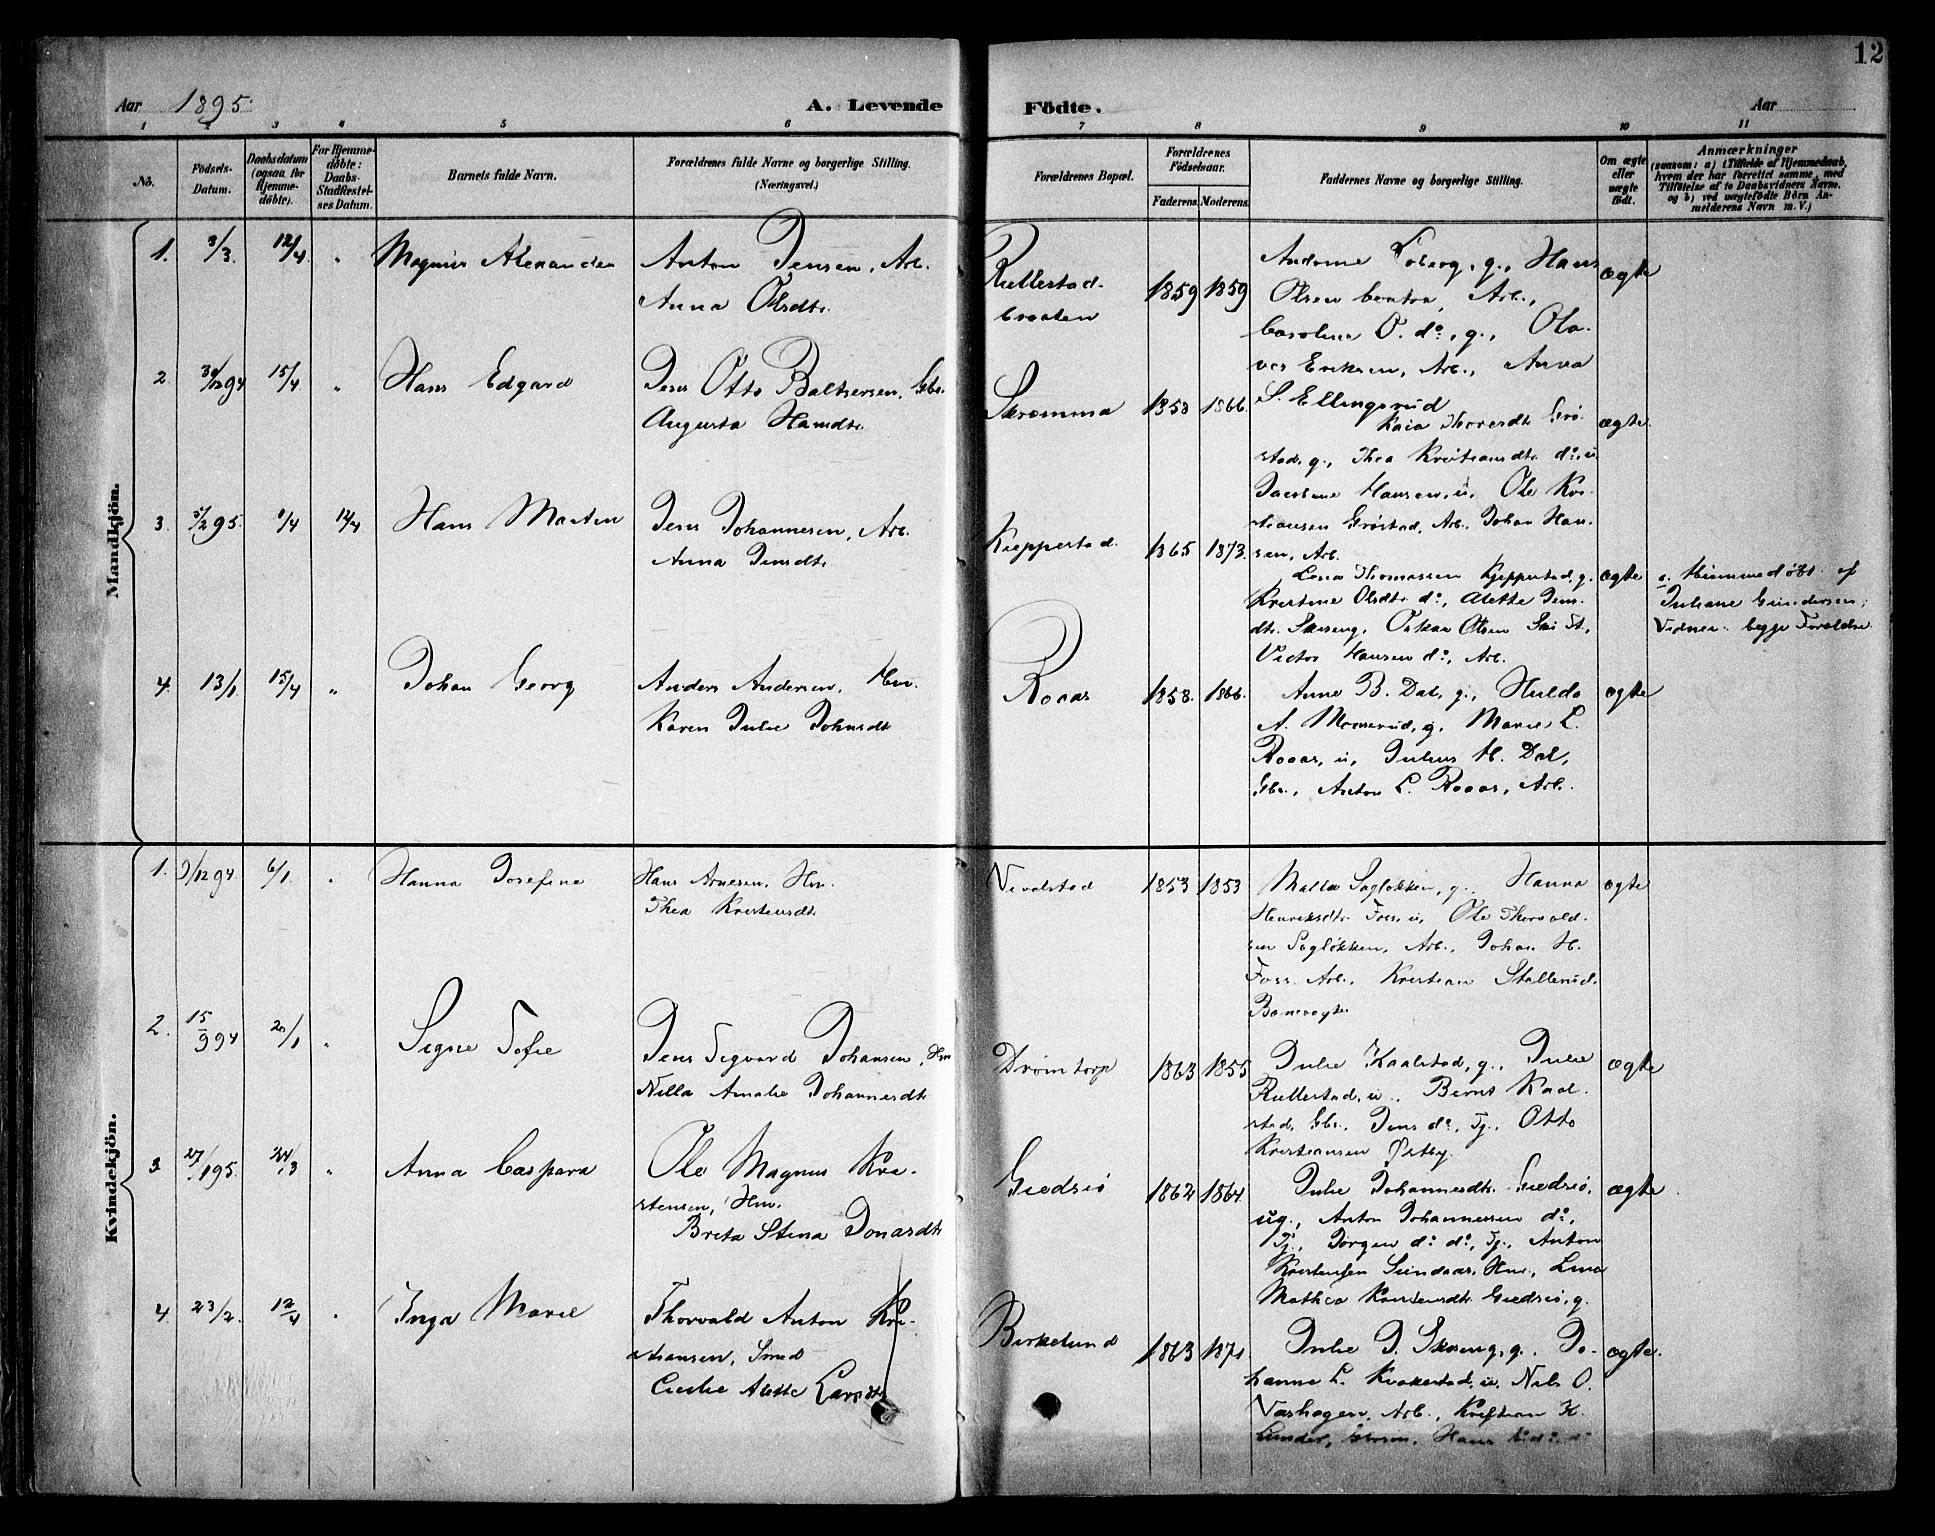 12
Aar 1895. A. Levende Födte. Aar
1 2 3 4 5 6 7 8 9 10 11
No.
Födsels-
Datum.
Daabsdatum
(ogsaa for
Hjemme-
døbte).
For Hjemme-
døbte:
Daabs-
Stadfæstel-
ses Datum.
Barnets fulde Navn.
Forældrenes fulde Navne og borgerlige Stilling.
(Næringsvei.)
Forældrenes Bopæl.
Forældrenes
Födselsaar.
Faderens. Moderens.
Faddernes Navne og borgerlige Stilling.
Om ægte
eller
uægte
født.
Anmærkninger
(saasom: a) i Tilfælde af Hjemmedaab,
hvem der har forrettet samme, med
Tilføielse af to Daabsvidners Navne.
og b) ved uægtefødte Börn An-
melderens Navn m. V.)
Mandkjön.
1. 3/3. 12/4 " Magnus Alexander
Anton Jensen, Arb.
Anna Olsdtr.
Rullestad-
braaten
1859 1859
Olsen Arb.,
Caroline O. do, g., Ola-
ves Eriksen, Arb., Anna
S. Ellingsrud
ægte
2. 30/12 94 15/4 " Hans Edgard
Jens Otto Balthersen, Gbr.
Augusta Hansdtr.
Skromma
1858 1866.
Kaia Thorersdtr. Grø-
stad, g., Thea Kristiansdtr. do, u.
Jacobine Hansen, u., Ole Kri-
stiansen Grøstad, Arb., Johan Han-
sen, Arb.
ægte.
3. 5/2 95. 1/4 12/4 Hans Martin
Jens Johannesen, Arb.
Anna Jensdtr.
Kjeppestad.
1865 1873.
Lena Thomassen Kjeppestad, g.
Kristine Olsdtr. do, Alette Jens-
dtr. Skoseng, Oskar Olsen Ski St.,
Victor Hansen do, Arb.
ægte
a. Hjemmedøbt af
Juliane Gundersen;
Vidner: begge Forældre
4. 13/1. 15/4 " Johan Georg
Anders Andersen, Hm.
Karen Julie Johnsdtr.
Roaas
1858. 1866.
Anne B. Dal, g., Hulda
A. Momerud, g., Marie L.
Roaas, u., Julius H. Dal,
Gbr., Anton L. Roaas, Arb.
ægte
Kvindekjön.
1. 9/12 94. 6/1. " Hanna Josefine
Hans Arnesen, Hm.
Thea Kristensdtr.
Nivelstad
1853 1853
Malla Sagløkken, g., Hanna
Henriksdtr. Foss, u., Ole Thorvald-
sen Sagløkken, Arb., Johan H.
Foss, Arb., Kristian Stallerud,
Banevogter
ægte
2. 15/9 94 20/1 " Signe Sofie
Jens Sigvard Johansen, Hm
Nilla Amalie Johannesdtr.
Drømtorp
1863 1855
Julie Kaalstad, g., Julie
Rullestad, u., Bernt Kaal-
stad, Gbr., Jens do, Tj., Otto
Kristiansen Østby.
ægte
3 27/1 95. 24/3 " Anna Caspara
Ole Magnus Kri-
stensen, Hm.
Brita Stina Jonasdtr.
Gjedsjø
1862 1864.
Julie Johannesdtr. Gjedsjø,
ug., Anton Johannessen do,
Tj., Jørgen do do, Tj., Anton
Kristensen Sundaas, Hm., Lina
Mathea Kristensdtr. Gjedsjø, g.
ægte
4. 23/2. 12/4 " Inga Marie
Thorvald Anton Kri-
stiansen, Smed
Cecilie Alette Larsdtr.
Birkelund
1863 1871.
Julie J. Skoseng, g., Jo-
hanne L. Kvakestad, u., Nils O.
Vashagen, Arb., Kristian K.
Lunder, Hans
ægte.